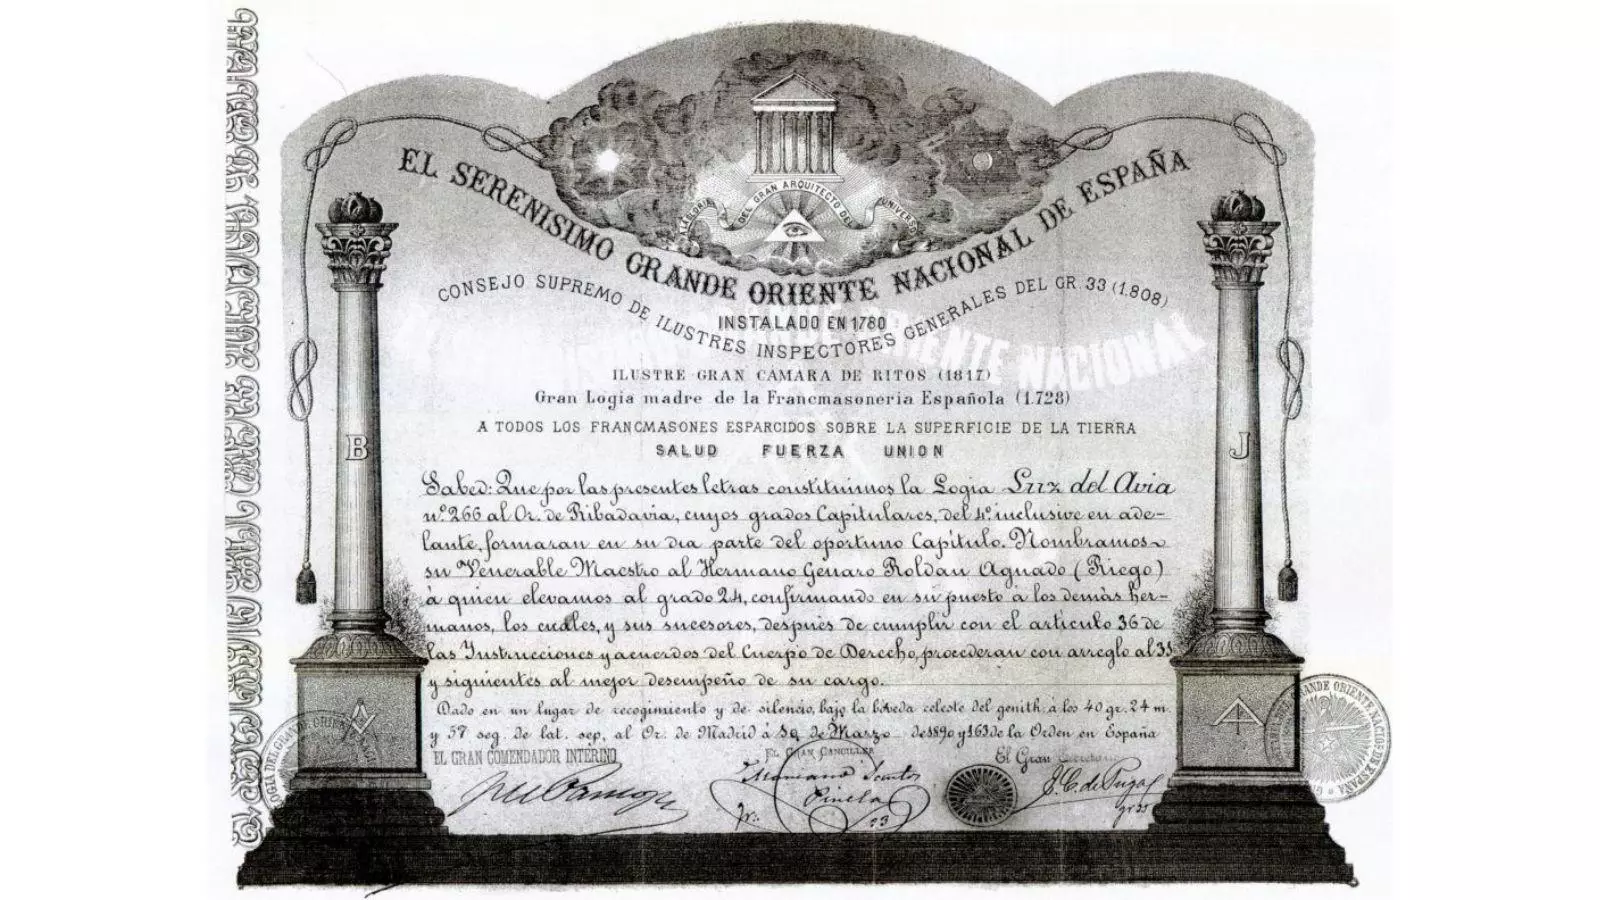 ALEGORIA DEL GRAN ARQUITECTO DEL UNIVERSO
EL SERENISIMO GRANDE ORIENTE NACIONAL DE ESPAÑA
CONSEJO SUPREMO DE ILUSTRES INSPECTORES GENERALES DEL GR 33 (1.808)
INSTALADO EN 1780
ORIENTE NACIONAL
ILUSTRE GRAN CÁMARA DE RITOS (1817)
Gran Logia madre de la Francmasoneria Española (1.728)
A TODOS LOS FRANCMASONES ESPARCIDOS SOBRE LA SUPERFICIE DE LA TIERRA
SALUD FUERZA UNION
B
J
Sabed: Que por las presentes letras constituimos la Logia Luz del Avia
nº. 266 al Or. de Ribadavia, cuyos grados Capitulares, del 4º inclusive en ade-
lante, formaran en su dia parte del oportuno Capítulo. Nombramos
su Venerable Maestro al Hermano Genaro Roldan Aguado (Riego)
á quien elevamos al grado 24, confirmando en su puesto á los demás her-
manos, los cuales, y sus sucesores, después de cumplir con el artículo 36 de
las Instrucciones y acuerdos del Cuerpo de Derecho, procederan con arreglo al 35
y siguientes al mejor desempeño de su cargo.
Dado en un lugar de recogimiento y de silencio, bajo la bóveda celeste del genith á los 40 gr. 24 m.
y 57 seg. de lat. sep, al Or. de Madrid á de Marzo de 1890 y 163 de la Orden en España
EL GRAN COMENDADOR INTERINO
EL GRAN CANCILLER
El Gran Secretario
Mariano Santos
Pinela
33
J. C. de Puga
gr 33
GRANDE ORIENTE NACIONAL DE ESPAÑA